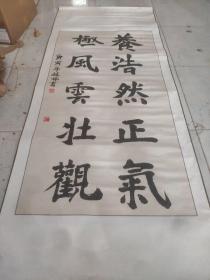 養浩然正氣
極風雲壯觀